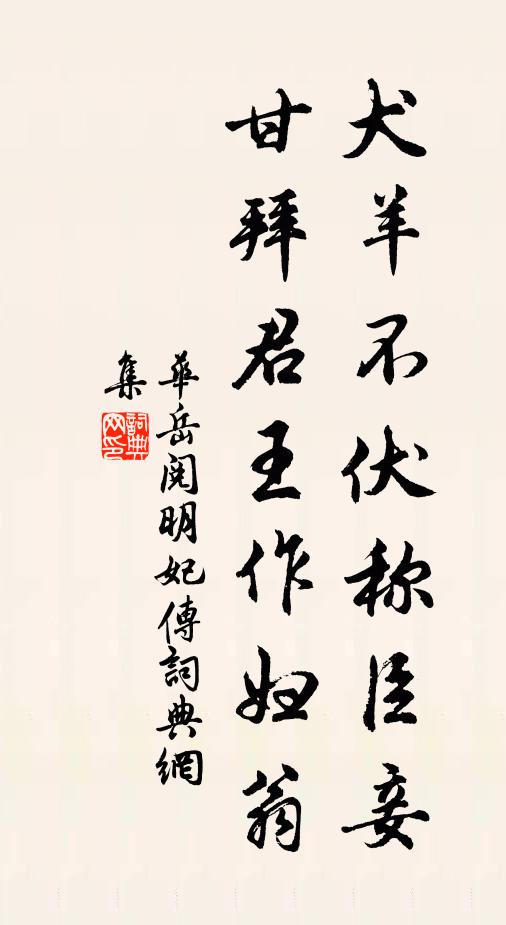 犬羊不伏称臣妾
甘拜君王作妇翁
華岳阅明妃傳詞典網
集
詞典
网印